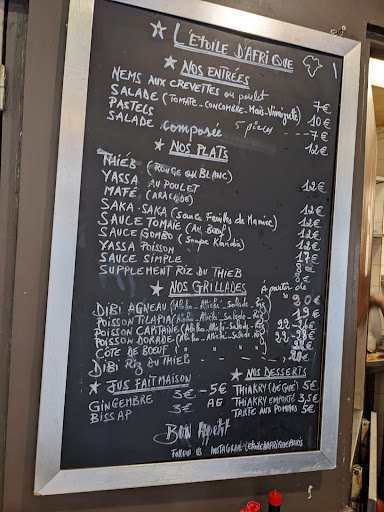 ★ L'ÉTOILE D'AFRIQUE
★ NOS ENTRÉES
NEMS AUX CREVETTES ou poulet 7€
SALADE (TOMATE-CONCOMBRE-Maïs-Vinaigrette) 10€
PASTELS 5 pièces 7€
SALADE composée 12€
★ NOS PLATS
THIÉB (ROUGE ou BLANC)
YASSA AU POULET 12€
MAFÉ (ARACHIDE) 12€
SAKA-SAKA (Sauce Feuilles de Manioc) 12€
SAUCE TOMATE (Au Bœuf) 12€
SAUCE GOMBO (Soupe Kandia) 12€
YASSA POISSON 17€
SAUCE SIMPLE
SUPPLEMENT RIZ DU THIEB
★ NOS GRILLADES à partir de
DIBI AGNEAU (Alloko-Attiéké-Salade-Riz)
POISSON TILAPIA (Alloko-Attiéké-Salade-Riz) 19€
POISSON CAPITAINE (Alloko-Attiéké-Salade-Riz)
POISSON DORADE (Alloko-Attiéké-Salade-Riz)
CÔTE DE BOEUF
DIBI RIZ DU THIEB
★ JUS FAIT MAISON
GINGEMBRE 3€ - 5€
BISSAP 3€
★ NOS DESSERTS
THIAKRY (DÉGUÉ) 5€
THIAKRY EMPORTÉ 3,5€
TARTE AUX POMMES 5€
BON Appétit
FOLLOW INSTAGRAM: LETOILEDAFRIQUEPARIS